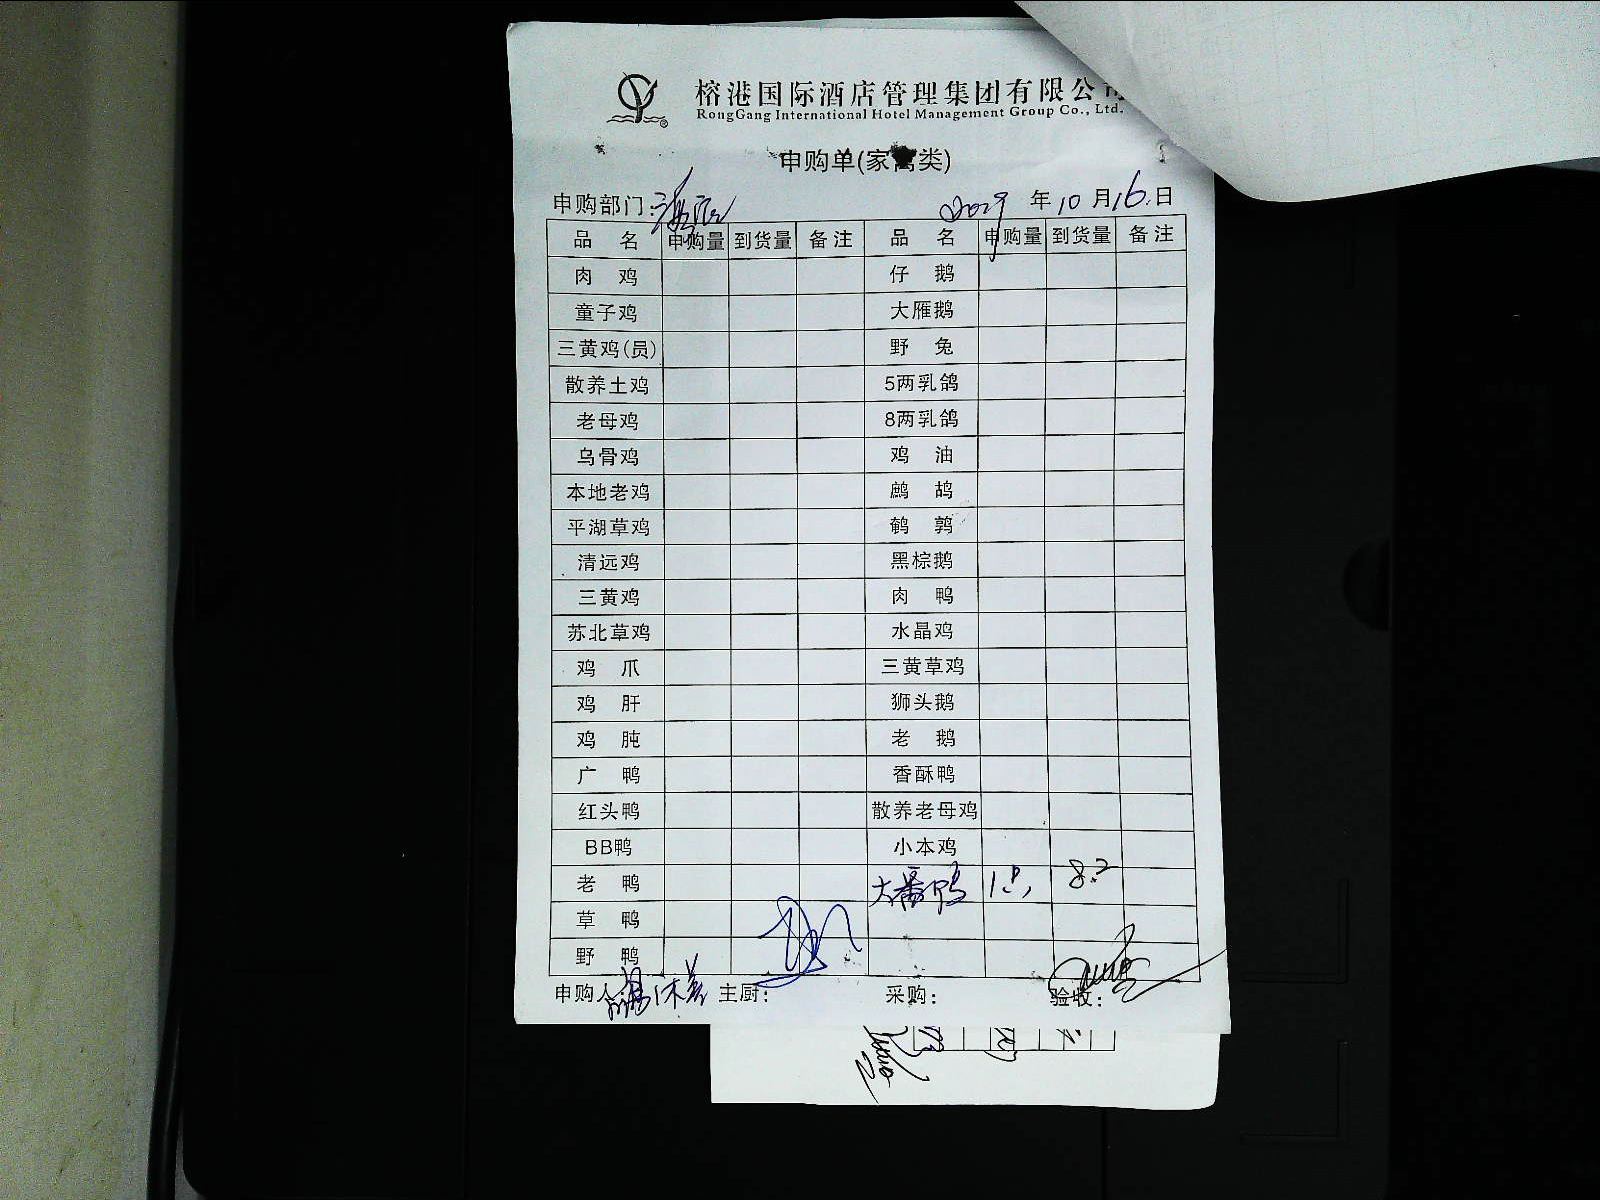 榕港国际酒店管理集团有限公司
RongGang International Hotel Management Group Co., Ltd.
申购单(家禽类)
申购部门:
年10月16日
品名 申购量 到货量 备注 品名 申购量 到货量 备注
肉鸡 仔鹅
童子鸡 大雁鹅
三黄鸡(员) 野兔
散养土鸡 5两乳鸽
老母鸡 8两乳鸽
乌骨鸡 鸡油
本地老鸡 鹧鸪
平湖草鸡 鹌鹑
清远鸡 黑棕鹅
三黄鸡 肉鸭
苏北草鸡 水晶鸡
鸡爪 三黄草鸡
鸡肝 狮头鹅
鸡肫 老鹅
广鸭 香酥鸭
红头鸭 散养老母鸡
BB鸭 小本鸡
老鸭 大番鸭 8.2
草鸭
野鸭
申购人: 主厨: 采购: 验收: